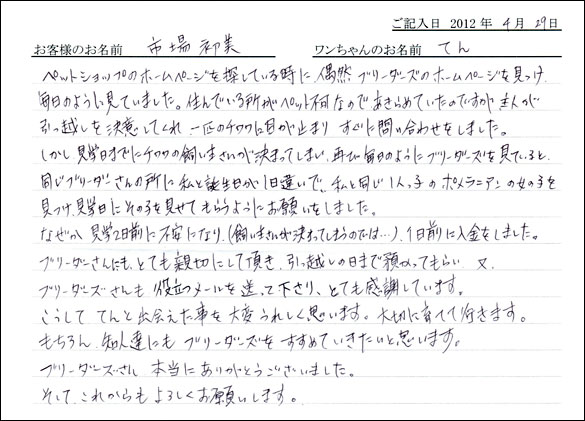 ご記入日 2012 年 4 月 29 日
お客様のお名前 市場 初美 ワンちゃんのお名前 てん
ペットショップのホームページを探している時に、偶然ブリーダーズのホームページを見つけ
毎日のように見ていました。住んでいる所がペット不可なのであきらめていたのですが主人が
引っ越しを決意してくれ 一匹のチワワに目が止まり すぐに問い合わせをしました。
しかし見学日までにチワワの飼いまさいが決まってしまい、再び毎日のようにブリーダーズを見ていると、
同じブリーダーさんの所に私と誕生日が1日違いで、私と同じ1人っ子のポメラニアンの女の子を
見つけ、見学日にその子を見せてもらうようにお願いをしました。
なぜか見学2日前に不安になり、(飼いまさいが決まってしまうのでは…)、1日前に入金をしました。
ブリーダーさんにも、とても親切にして頂き、引っ越しの日まで預かってもらい 又、
ブリーダーズさんも 役立つメールを送って下さり、とても感謝しています。
こうして てんと出会えた事を大変うれしく思います。大切に育てて行きます。
もちろん、知人達にも ブリーダーズをすすめていきたいと思います。
ブリーダーズさん 本当にありがとうございました。
そして、これからもよろしくお願いします。